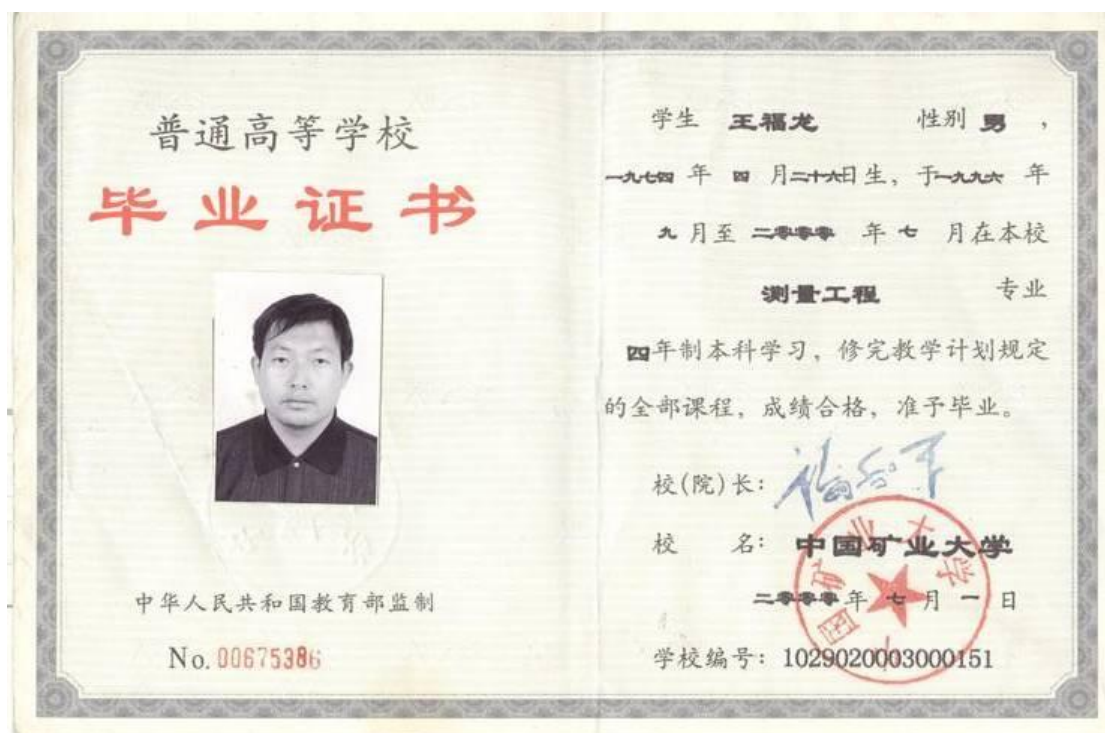 普通高等学校
毕业证书
中华人民共和国教育部监制
No. 00675386
学生 王福龙 性别 男，
一九七四 年 四 月二十六日生，于一九九六 年
九 月至 二零零零 年 七 月在本校
测量工程 专业
四年制本科学习，修完教学计划规定
的全部课程，成绩合格，准予毕业。
校(院)长：
校 名：中国矿业大学
二零零零年 七 月 一 日
学校编号：1029020003000151
中国矿业大学